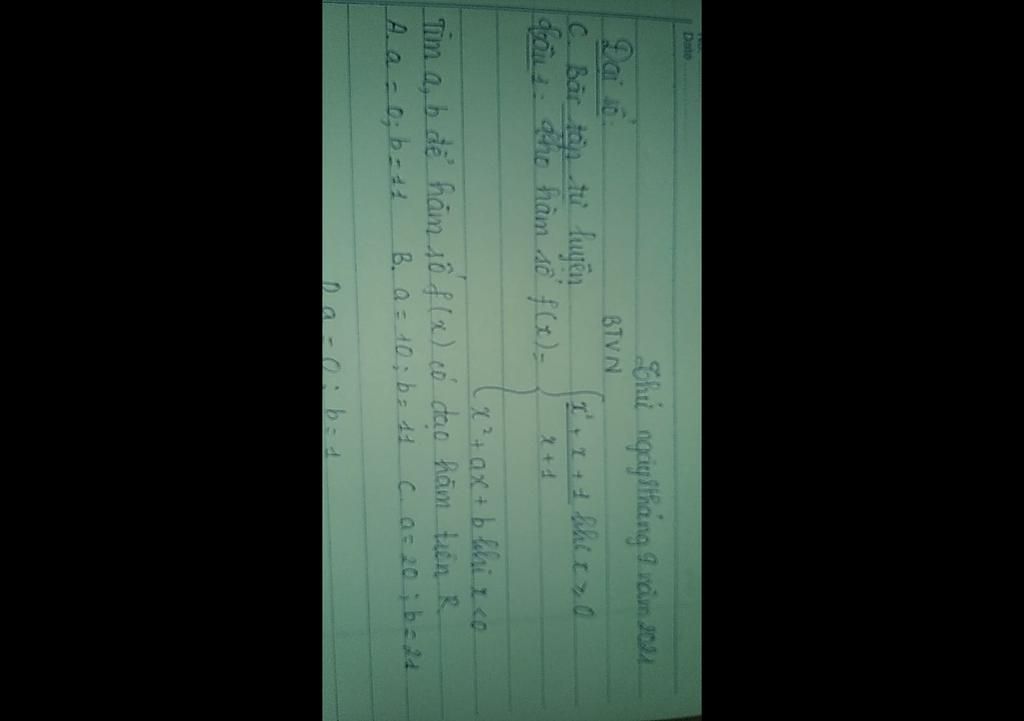 No.
Date
Thứ ngày 8 tháng 9 năm 2021
BTVN
Đại số:
C. Bài tập tự luyện
Câu 1. Cho hàm số f(x) = { x² + x + 1 khi x ≥ 0
x + 1
x² + ax + b khi x < 0
Tìm a, b để hàm số f(x) có đạo hàm trên R
A. a = 0; b = 11 B. a = 10; b = 11 C. a = 20; b = 21
D. a = 0; b = 1